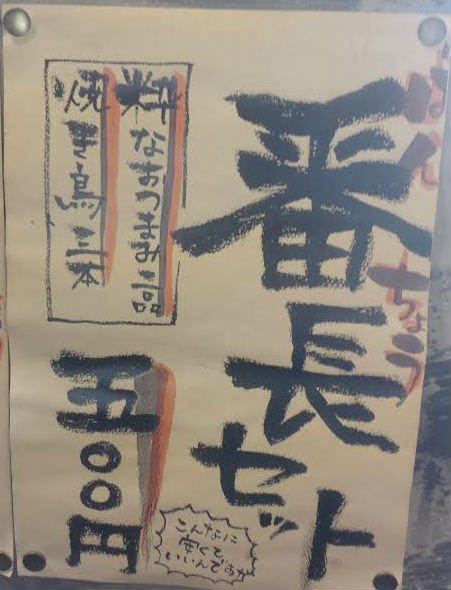 ばんちょう
番長セット
粋なおつまみ二品
焼き鳥三本
五〇〇円
こんなに
安くて
いいんですか